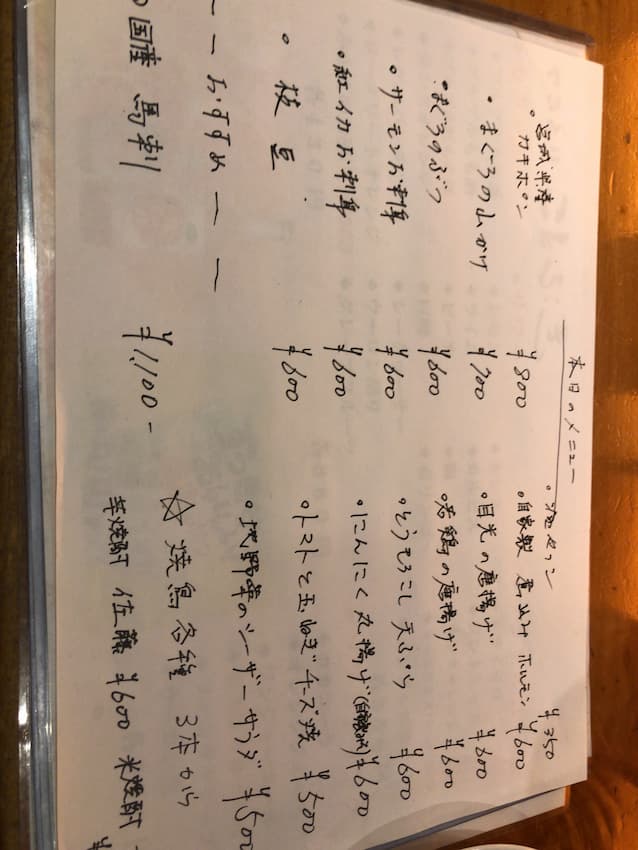 本日のメニュー
・宮城県産
カキポン ¥800
・まぐろの山かけ ¥700
・まぐろのぶつ ¥600
・サーモンお刺身 ¥600
・紅イカお刺身 ¥600
・枝豆 ¥600
－－おすすめ－－
国産 馬刺 ¥1,100-
¥350
・自家製 煮込み ホルモン ¥600
・目光の唐揚げ ¥600
・若鶏の唐揚げ ¥600
・とうもろこし天ぷら ¥600
・にんにく丸揚げ ¥600
・トマトと玉ねぎチーズ焼 ¥500
・地野菜のシーザーサラダ ¥500
☆ 焼鳥各種 3本から
芋焼酎 佐藤 ¥600 米焼酎